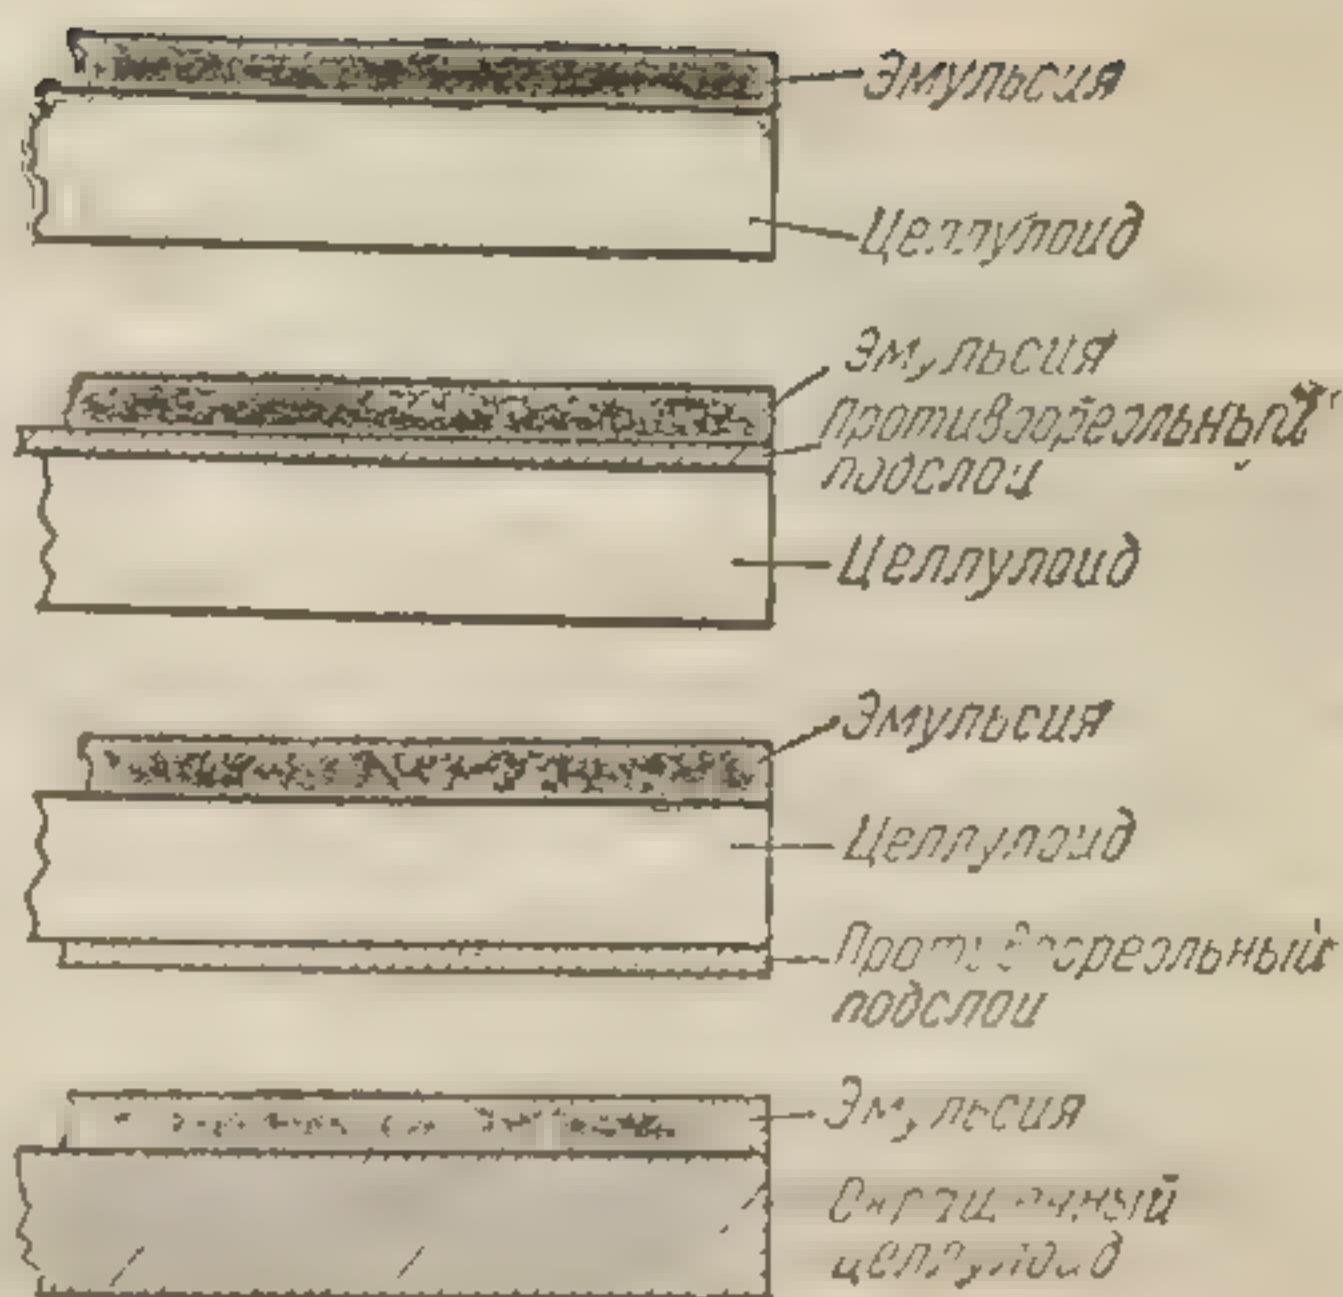 Эмульсия
Целлулоид
Эмульсия
Противоореольный
подслой
Целлулоид
Эмульсия
Целлулоид
Противоореольный
подслой
Эмульсия
целлулоид